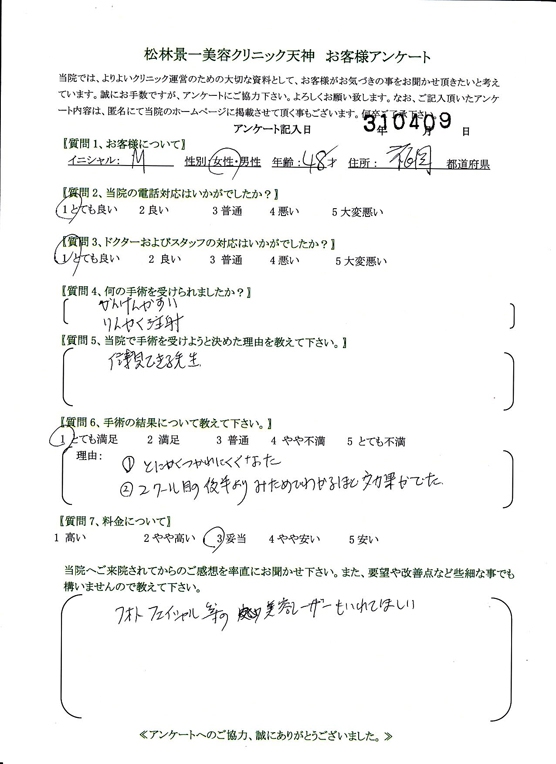 松林景一美容クリニック天神　お客様アンケート
当院では、よりよいクリニック運営のための大切な資料として、お客様がお気づきの事をお聞かせ頂きたいと考え
ています。誠にお手数ですが、アンケートにご協力下さい。よろしくお願い致します。なお、ご記入頂いたアンケ
ート内容は、匿名にて当院のホームページに掲載させて頂く事もございます。何卒ご了承下さい。
アンケート記入日　310409　年　月　日
〖質問1、お客様について〗
イニシャル：　M　性別：女性・男性　年齢：48才　住所：　福岡　都道府県
〖質問2、当院の電話対応はいかがでしたか？〗
1とても良い　2良い　3普通　4悪い　5大変悪い
〖質問3、ドクターおよびスタッフの対応はいかがでしたか？〗
1とても良い　2良い　3普通　4悪い　5大変悪い
〖質問4、何の手術を受けられましたか？〗
りんやく注射
〖質問5、当院で手術を受けようと決めた理由を教えて下さい。〗
信頼できる先生
〖質問6、手術の結果について教えて下さい。〗
1とても満足　2満足　3普通　4やや不満　5とても不満
理由：
① とにかくつかれにくくなった
② 2クール目の後半よりみためでわかるほど効果がでた
〖質問7、料金について〗
1高い　2やや高い　3妥当　4やや安い　5安い
当院へご来院されてからのご感想を率直にお聞かせ下さい。また、要望や改善点など些細な事でも
構いませんので教えて下さい。
フォトフェイシャル等の美容レーザーもいれてほしい
≪アンケートへのご協力、誠にありがとうございました。≫